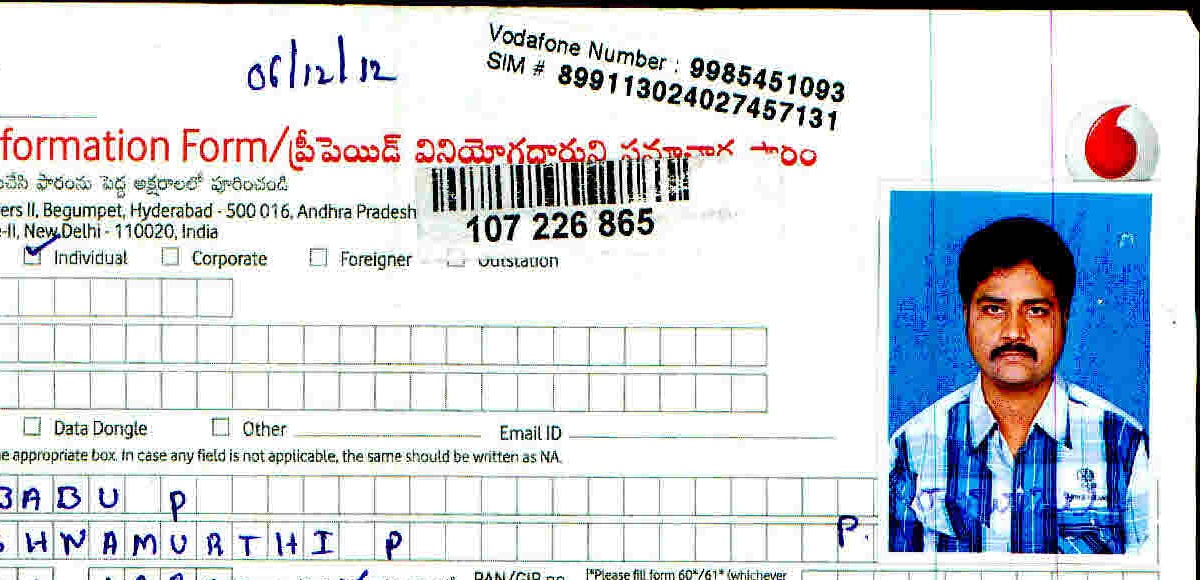 06/12/12
Vodafone Number : 9985451093
SIM # 899113024027457131
formation Form/ప్రీపెయిడ్ వినియోగదారుని
చేసి ఫారంను పెద్ద అక్షరాలలో పూరించండి
ers II, Begumpet, Hyderabad - 500 016, Andhra Pradesh
-II, New Delhi - 110020, India
107 226 865
Individual Corporate Foreigner Outstation
Data Dongle Other Email ID
e appropriate box. In case any field is not applicable, the same should be written as NA.
BABU P
HNAMURTHI P P.
PAN/GIR no. (*Please fill form 60*/61* (whichever